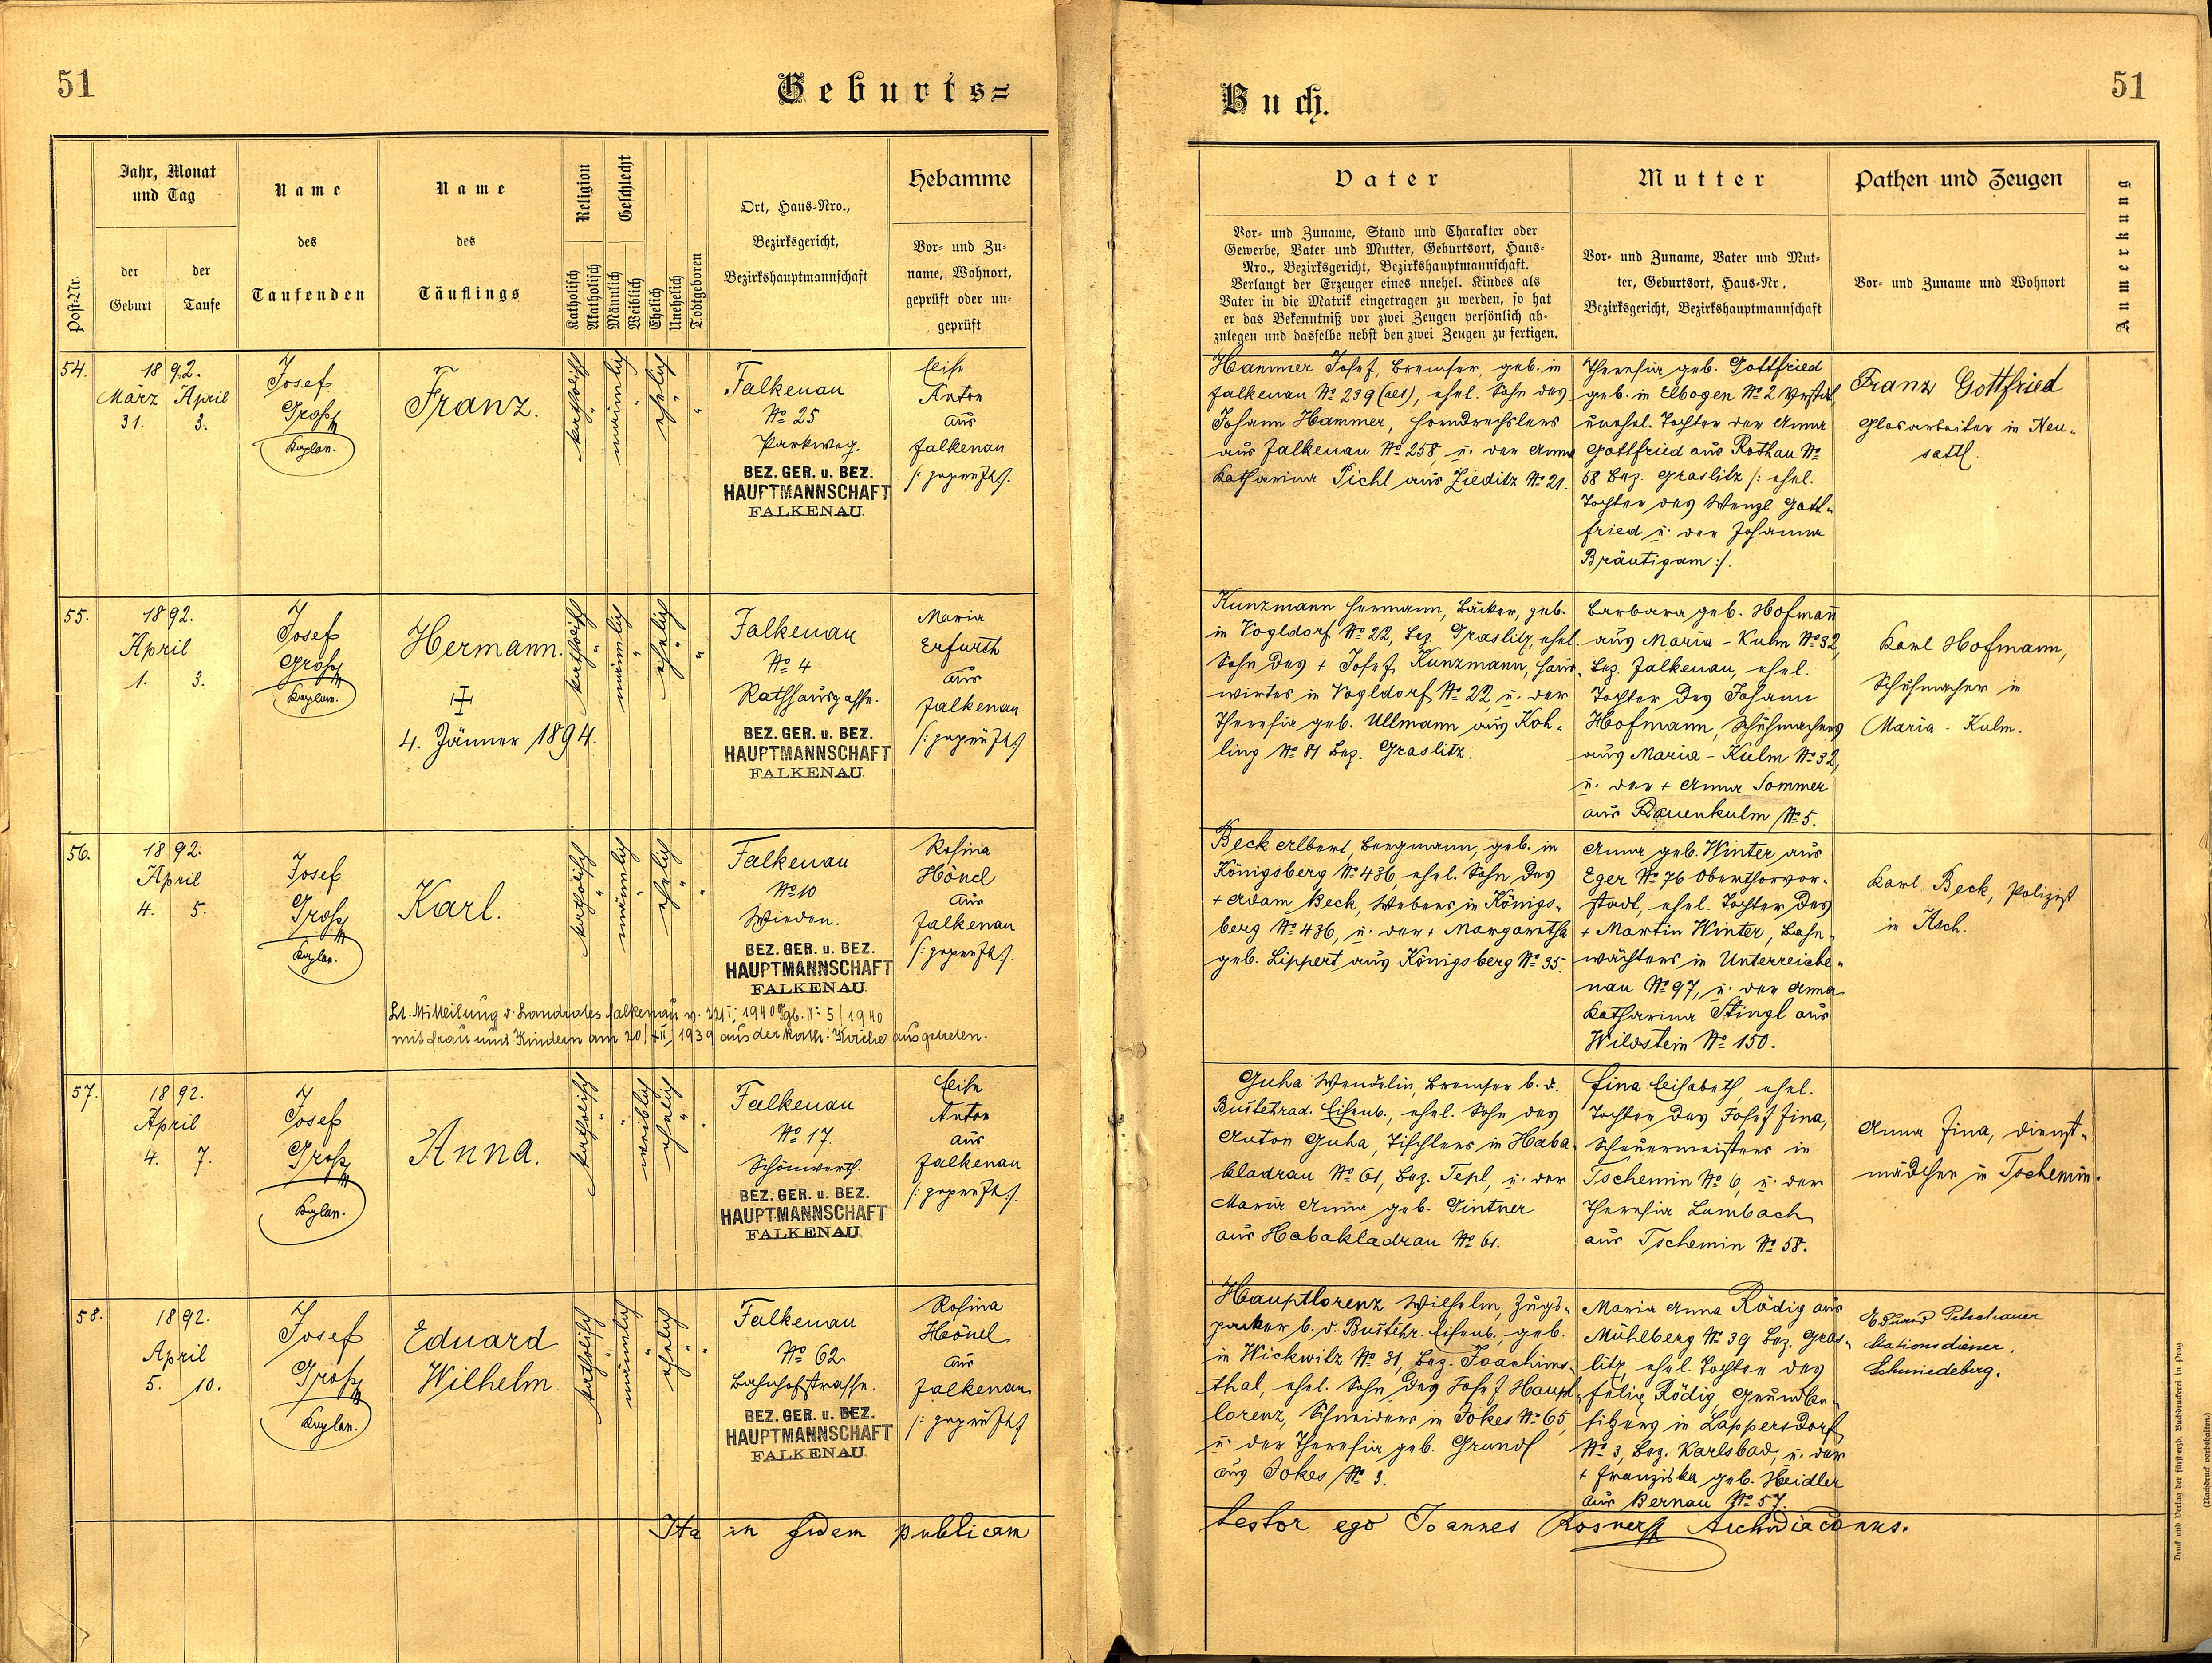 51
Geburts=
Post-Nr.
Jahr, Monat
und Tag
der
Geburt
der
Taufe
Name
des
Taufenden
Name
des
Täuflings
Religion
Katholisch
Akatholisch
Geschlecht
Männlich
Weiblich
Ehelich
Unehelich
Todtgeboren
Ort, Haus-Nro.,
Bezirksgericht,
Bezirkshauptmannschaft
Hebamme
Vor- und Zu-
name, Wohnort,
geprüft oder un-
geprüft
54.
1892.
März April
31. 3.
Josef
Gross
Kaplan.
Franz.
katholisch
männlich
ehelich
Falkenau
No 25
Parkweg.
BEZ. GER. u. BEZ.
HAUPTMANNSCHAFT
FALKENAU.
Anton
aus
Falkenau
/: geprüft :/.
55.
1892.
April
1. 3.
Josef
Gross
Kaplan.
Hermann.
4. Jänner 1894.
katholisch
männlich
ehelich
Falkenau
No 4
Rathhausgasse.
BEZ. GER. u. BEZ.
HAUPTMANNSCHAFT
FALKENAU.
Maria
Erfurth
aus
Falkenau
/: geprüft :/
56.
1892.
April
4. 5.
Josef
Gross
Kaplan.
Karl.
katholisch
männlich
ehelich
Falkenau
No 10
Wieden.
BEZ. GER. u. BEZ.
HAUPTMANNSCHAFT
FALKENAU.
Rosina
Hönel
aus
Falkenau
/: geprüft :/.
Lt. Mitteilung d. Landrates Falkenau v. 1940 5/1940
mit Frau und Kindern am 20/XII 1939 aus der kath. Kirche ausgetreten.
57.
1892.
April
4. 7.
Josef
Gross
Kaplan.
Anna.
katholisch
weiblich
ehelich
Falkenau
No 17.
Schönwerth.
BEZ. GER. u. BEZ.
HAUPTMANNSCHAFT
FALKENAU.
Anton
aus
Falkenau
/: geprüft :/.
58.
1892.
April
5. 10.
Josef
Gross
Kaplan.
Eduard
Wilhelm.
katholisch
männlich
ehelich
Falkenau
No 62
Bahnhofstrasse.
BEZ. GER. u. BEZ.
HAUPTMANNSCHAFT
FALKENAU.
Rosina
Hönel
aus
Falkenau
/: geprüft :/
Ita in fidem publicam
Buch.
51
Vater
Vor- und Zuname, Stand und Charakter oder
Gewerbe, Vater und Mutter, Geburtsort, Haus-
Nro., Bezirksgericht, Bezirkshauptmannschaft.
Verlangt der Erzeuger eines unehel. Kindes als
Vater in die Matrik eingetragen zu werden, so hat
er das Bekenntniß vor zwei Zeugen persönlich ab-
zulegen und dasselbe nebst den zwei Zeugen zu fertigen.
Mutter
Vor- und Zuname, Vater und Mut-
ter, Geburtsort, Haus-Nr.
Bezirksgericht, Bezirkshauptmannschaft
Pathen und Zeugen
Vor- und Zuname und Wohnort
Anmerkung
Hammer Josef, Bremser, geb. in
Falkenau No 239 (alt), ehel. Sohn des
Johann Hammer, Horndrechslers
aus Falkenau No 258, u. der Anna
Katharina Pichl aus Zieditz No 21.
Theresia geb. Gottfried
geb. in Elbogen No 2
unehel. Tochter der Anna
Gottfried aus Rothau No
58 Bez. Graslitz /: ehel.
Tochter des Wenzl Gott-
fried u. der Johanna
Bräutigam :/.
Franz Gottfried
Glasarbeiter in Neu-
sattl.
Kunzmann Hermann, Bäcker, geb.
in Vogldorf No 22, Bez. Graslitz, ehel.
Sohn des + Josef Kunzmann, Haus-
wirtes in Vogldorf No 22, u. der
Theresia geb. Ullmann aus Koh-
ling No 81 Bez. Graslitz.
Barbara geb. Hofmann
aus Maria-Kulm No 32,
Bez. Falkenau, ehel.
Tochter des Johann
Hofmann, Schuhmachers
aus Maria-Kulm No 32,
u. der + Anna Sommer
aus Rauenkulm No 5.
Karl Hofmann,
Schuhmacher in
Maria-Kulm.
Beck Albert, Bergmann, geb. in
Königsberg No 436, ehel. Sohn des
+ Adam Beck, Webers in Königs-
berg No 436, u. der + Margaretha
geb. Lippert aus Königsberg No 35.
Anna geb. Winter aus
Eger No 76 Oberthorvor-
stadt, ehel. Tochter des
+ Martin Winter, Bahn-
wächters in Unterreiche-
nau No 97, u. der Anna
Katharina Stingl aus
Wildstein No 150.
Karl Beck, Polizist
in Asch.
Guha Wendelin, Bremser b. d.
Bustehrad. Eisenb., ehel. Sohn des
Anton Guha, Tischlers in Haba-
kladrau No 61, Bez. Tepl, u. der
Maria Anna geb. Gintner
aus Habakladrau No 61.
Fina Elisabeth, ehel.
Tochter des Josef Fina,
Scheuermeisters in
Tschemin No 6, u. der
Theresia Lumbach
aus Tschemin No 58.
Anna Fina, Dienst-
mädchen in Tschemin.
Hauptlorenz Wilhelm, Zugs-
packer b. d. Bustehr. Eisenb., geb.
in Wickwitz No 31, Bez. Joachims-
thal, ehel. Sohn des Josef Haupt-
lorenz, Schneiders in Jokes No 65,
u. der Theresia geb. Grundl
aus Jokes No 3.
Maria Anna Rödig aus
Mühlberg No 39 Bez. Gras-
litz, ehel. Tochter des
Felix Rödig, Grundbe-
sitzers in Lappersdorf
No 3, Bez. Karlsbad, u. der
+ Franziska geb. Heidler
aus Bernau No 57.
Eduard Petschauer
Stationsdiener.
Schmiedeberg.
testor ego Joannes Rosner Archidiaconus.
Druck und Verlag der fürsterzb. Buchdruckerei in Prag.
(Nachdruck vorbehalten.)